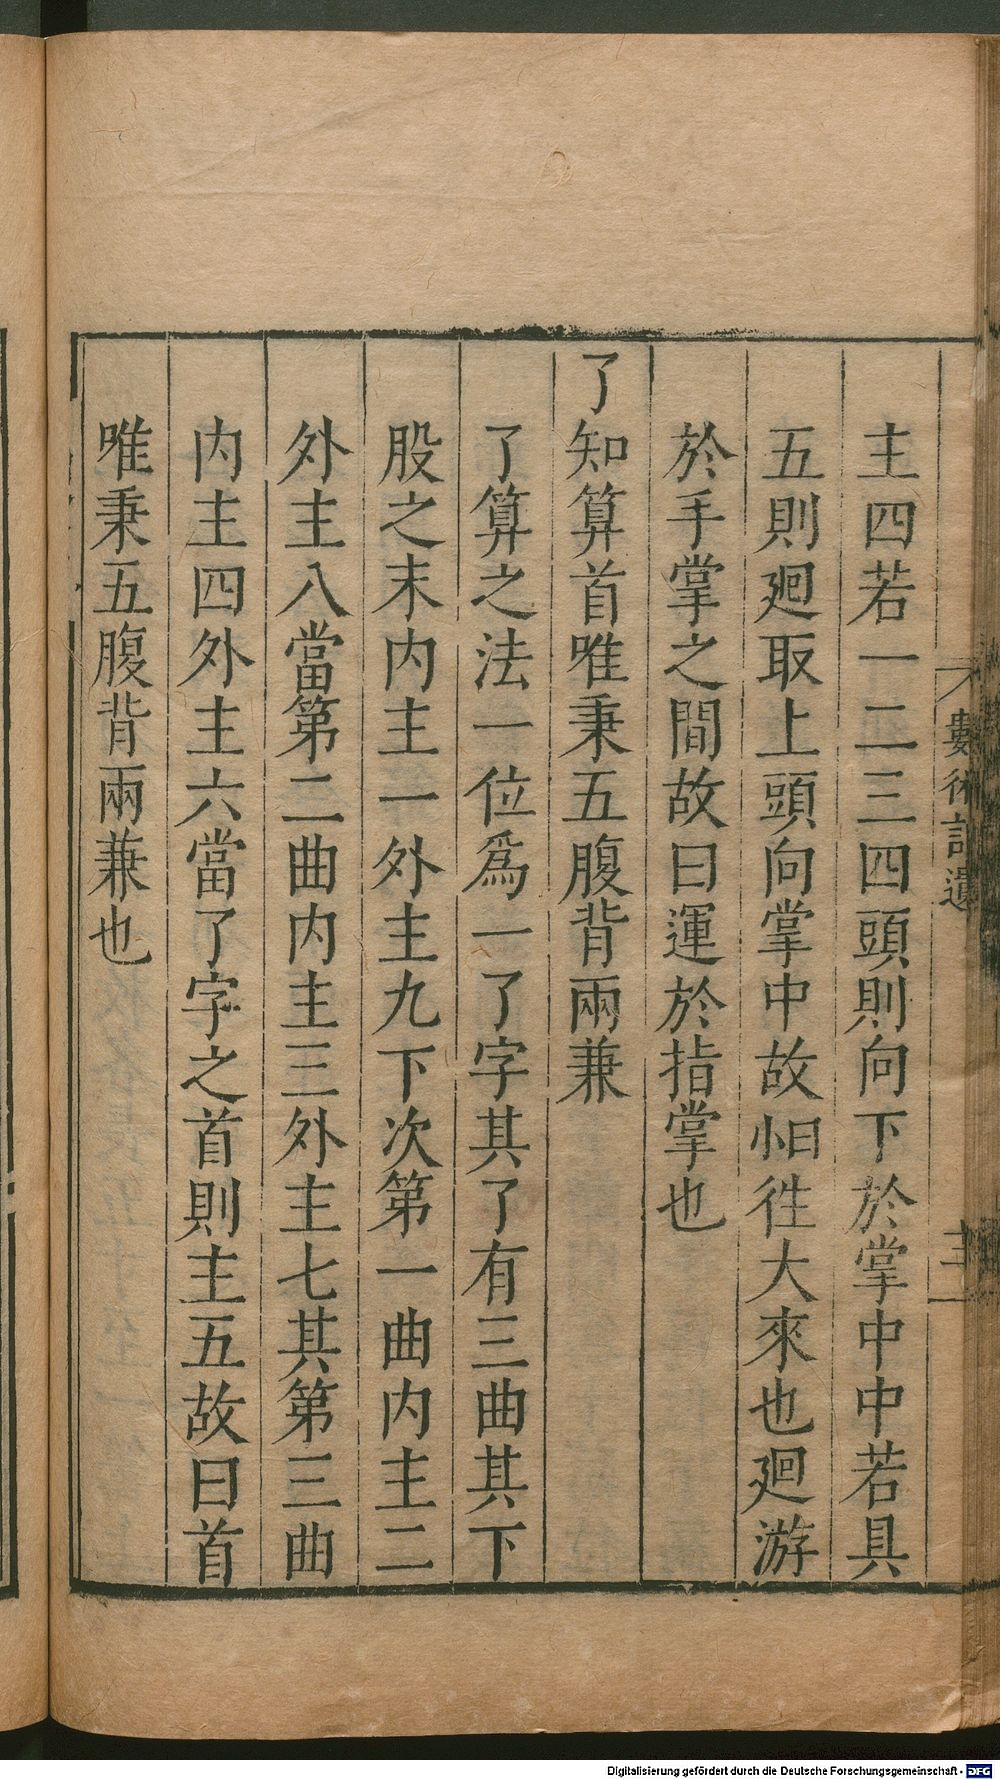 主四若一二三四頭則向下於掌中中若具
五則廻取上頭向掌中故㤙徃大來也廻游
於手掌之間故曰運於指掌也
了知算首唯秉五腹背兩兼
了算之法一位爲一了字其了有三曲其下
股之末内主一外主九下次第一曲内主二
外主八當第二曲内主三外主七其第三曲
内主四外主六當了字之首則主五故曰首
唯秉五腹背兩兼也
數術記遺
Digitalisierung gefördert durch die Deutsche Forschungsgemeinschaft - DFG